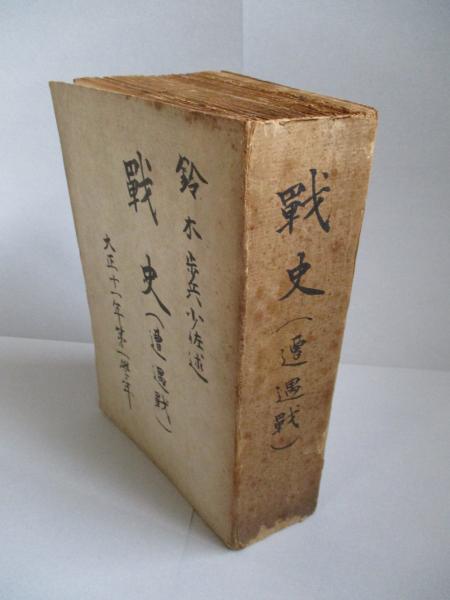 鈴木歩兵少佐述
戰史（遭遇戰）
大正十一年第一学年
戰史（遭遇戰）